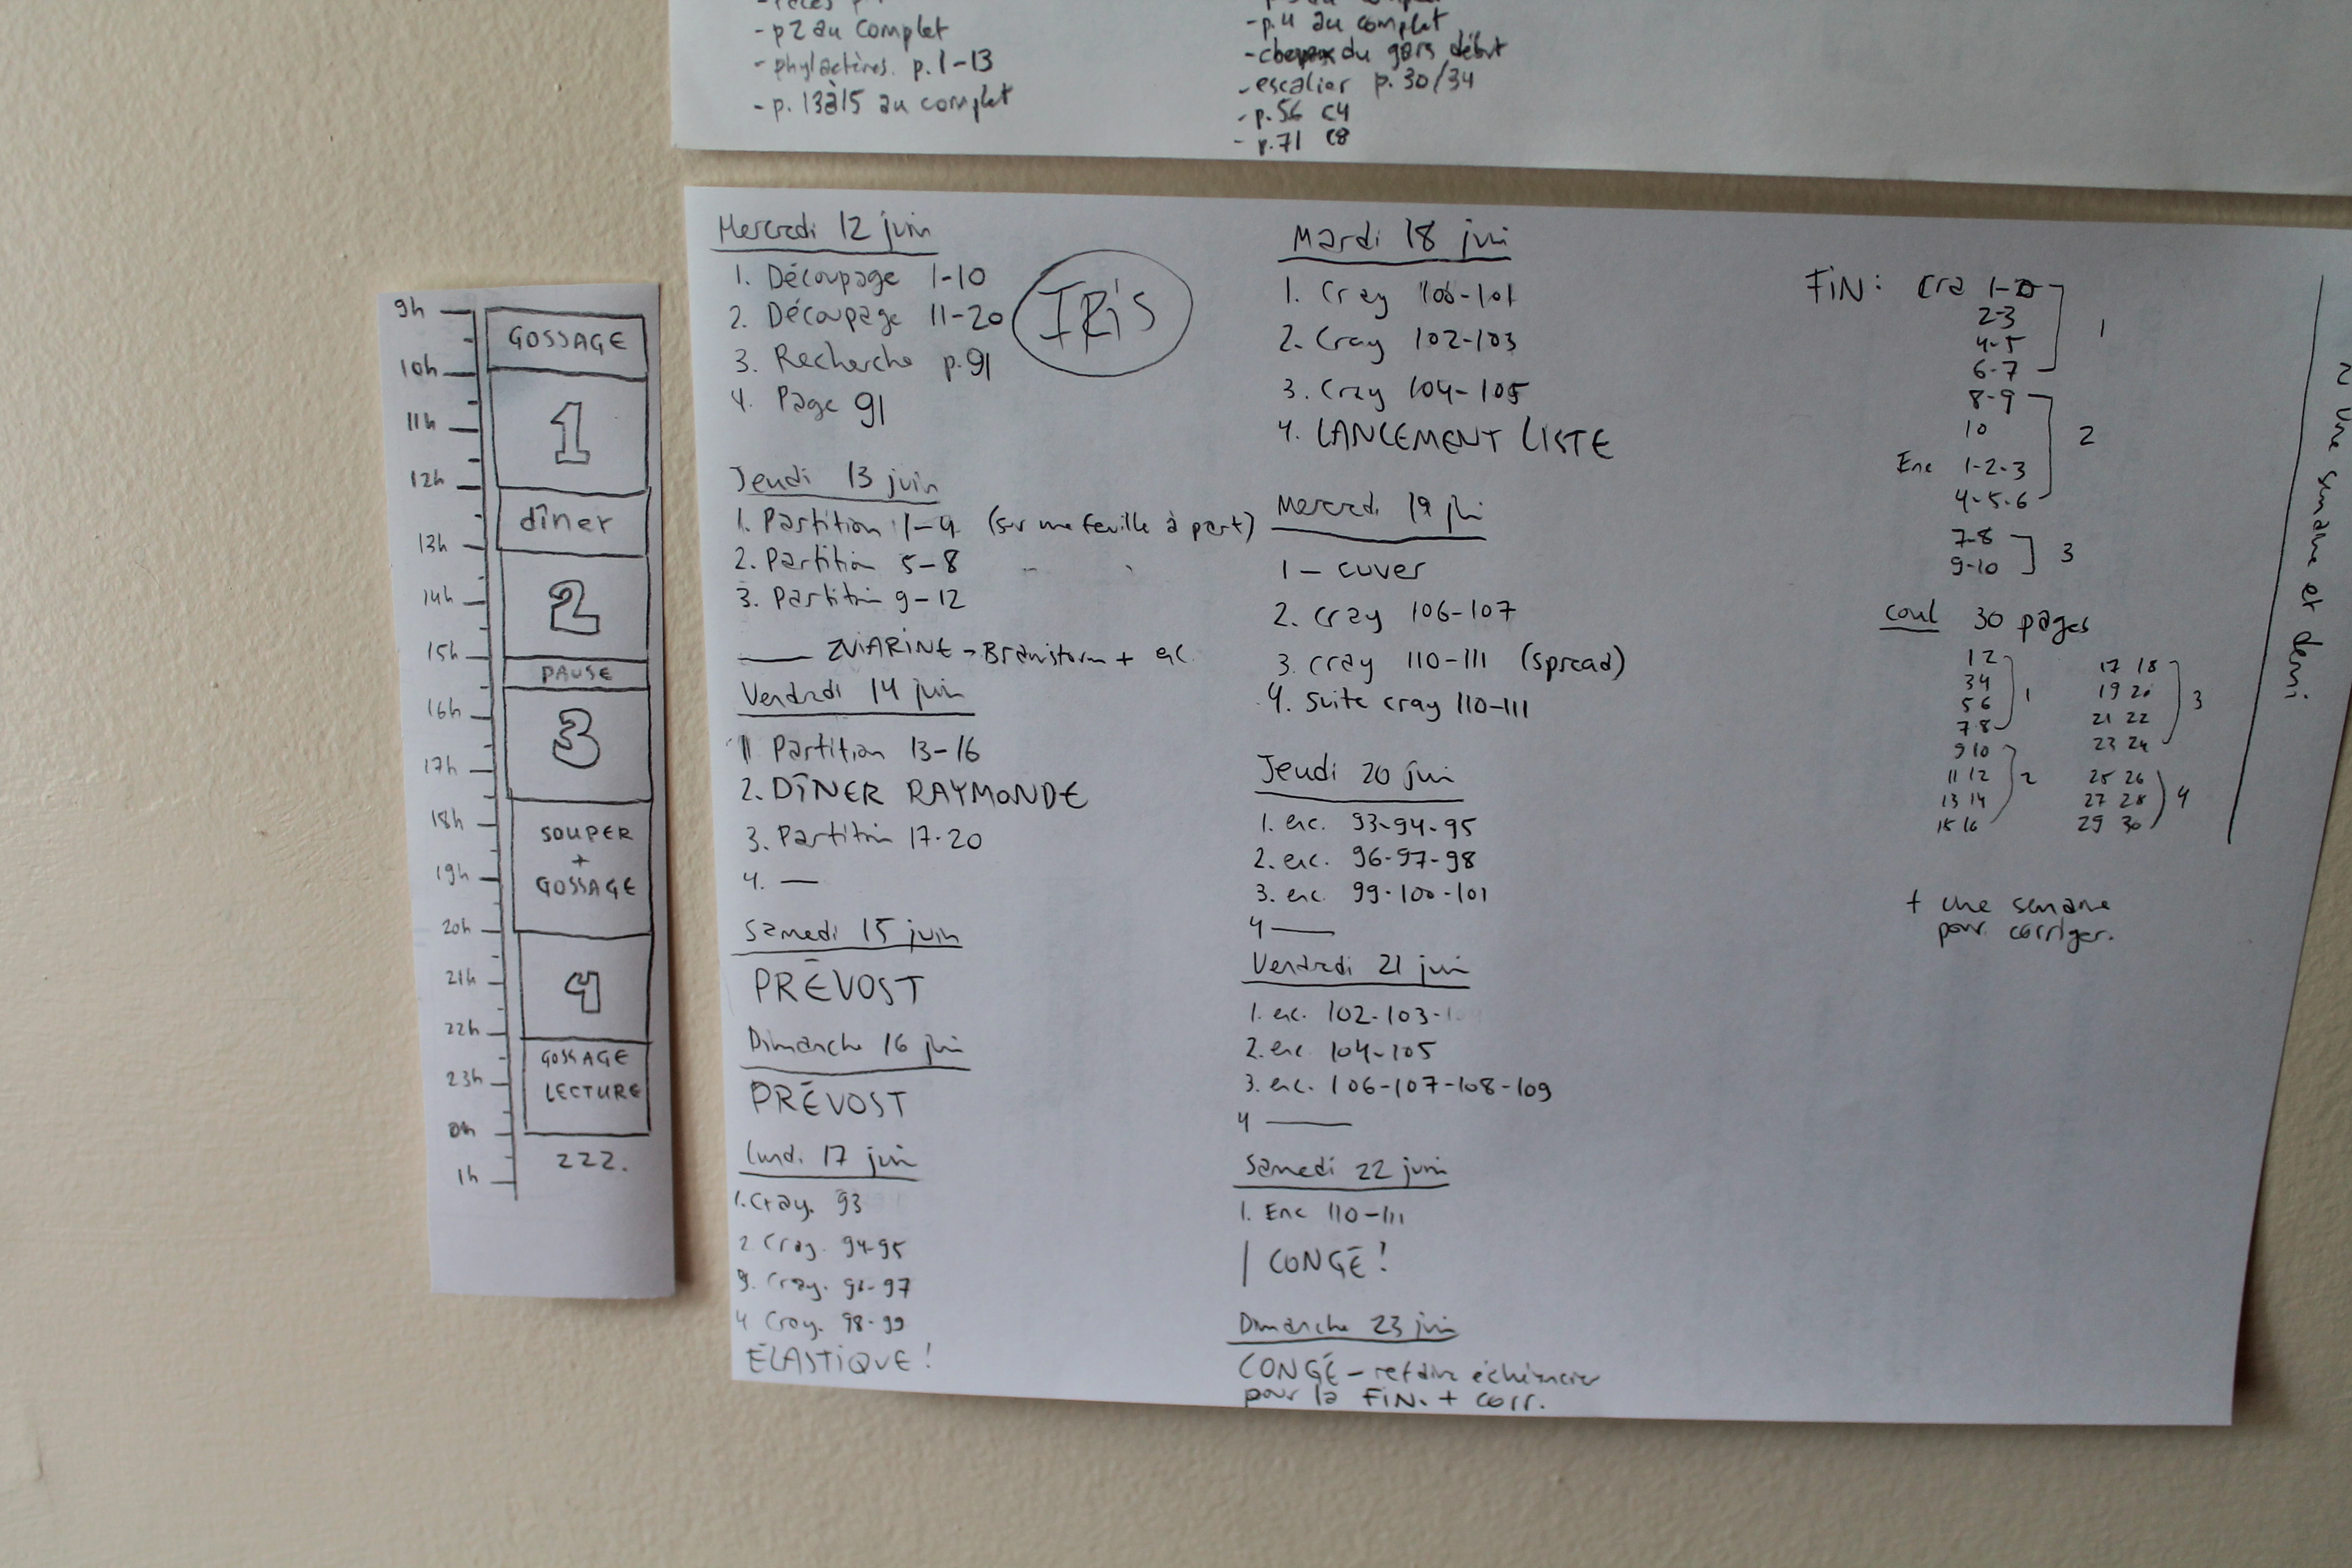 - p2 au complet
- phylactères. p. 1-13
- p. 13 à 15 au complet
- p.4 au complet
- du gars début
- escalier p. 30/34
- p.56 C4
- p.71 C8
9h
10h
11h
12h
13h
14h
15h
16h
17h
18h
19h
20h
21h
22h
23h
0h
1h
GOSSAGE
1
dîner
2
PAUSE
3
SOUPER
+
GOSSAGE
4
GOSSAGE
LECTURE
zzz.
Mercredi 12 juin
1. Découpage 1-10
2. Découpage 11-20
3. Recherche p.91
4. Page 91
IRIS
Jeudi 13 juin
1. Partition 1-4 (sur une feuille à part)
2. Partition 5-8
3. Partition 9-12
— ZVIARINE → Brainstorm +
Vendredi 14 juin
1 Partition 13-16
2. DÎNER RAYMONDE
3. Partition 17-20
4. —
Samedi 15 juin
PRÉVOST
Dimanche 16 juin
PRÉVOST
Lundi 17 juin
1. Cray. 93
2 Cray. 94-95
3. Cray. 96-97
4 Cray. 98-99
ÉLASTIQUE!
Mardi 18 juin
1. Cray 100-101
2. Cray 102-103
3. Cray 104-105
4. LANCEMENT LISTE
Mercredi 19 juin
1 — cuver
2. Cray 106-107
3. Cray 110-111 (spread)
4. Suite cray 110-111
Jeudi 20 juin
1. enc. 93-94-95
2. enc. 96-97-98
3. enc. 99-100-101
4 —
Vendredi 21 juin
1. enc. 102-103-
2. enc. 104-105
3. enc. 106-107-108-109
4 —
Samedi 22 juin
1. Enc 110-111
| CONGÉ!
Dimanche 23 juin
CONGÉ - refaire échéancier
pour la FIN. + corr.
FIN: Cra 1-
2-3
4-5
6-7
1
8-9
10
Enc 1-2-3
4-5-6
2
7-8
9-10
3
coul 30 pages
1 2
3 4
5 6
7 8
1
9 10
11 12
13 14
15 16
2
17 18
19 20
21 22
23 24
3
25 26
27 28
29 30
4
+ une semaine
pour corriger.
une semaine et demi